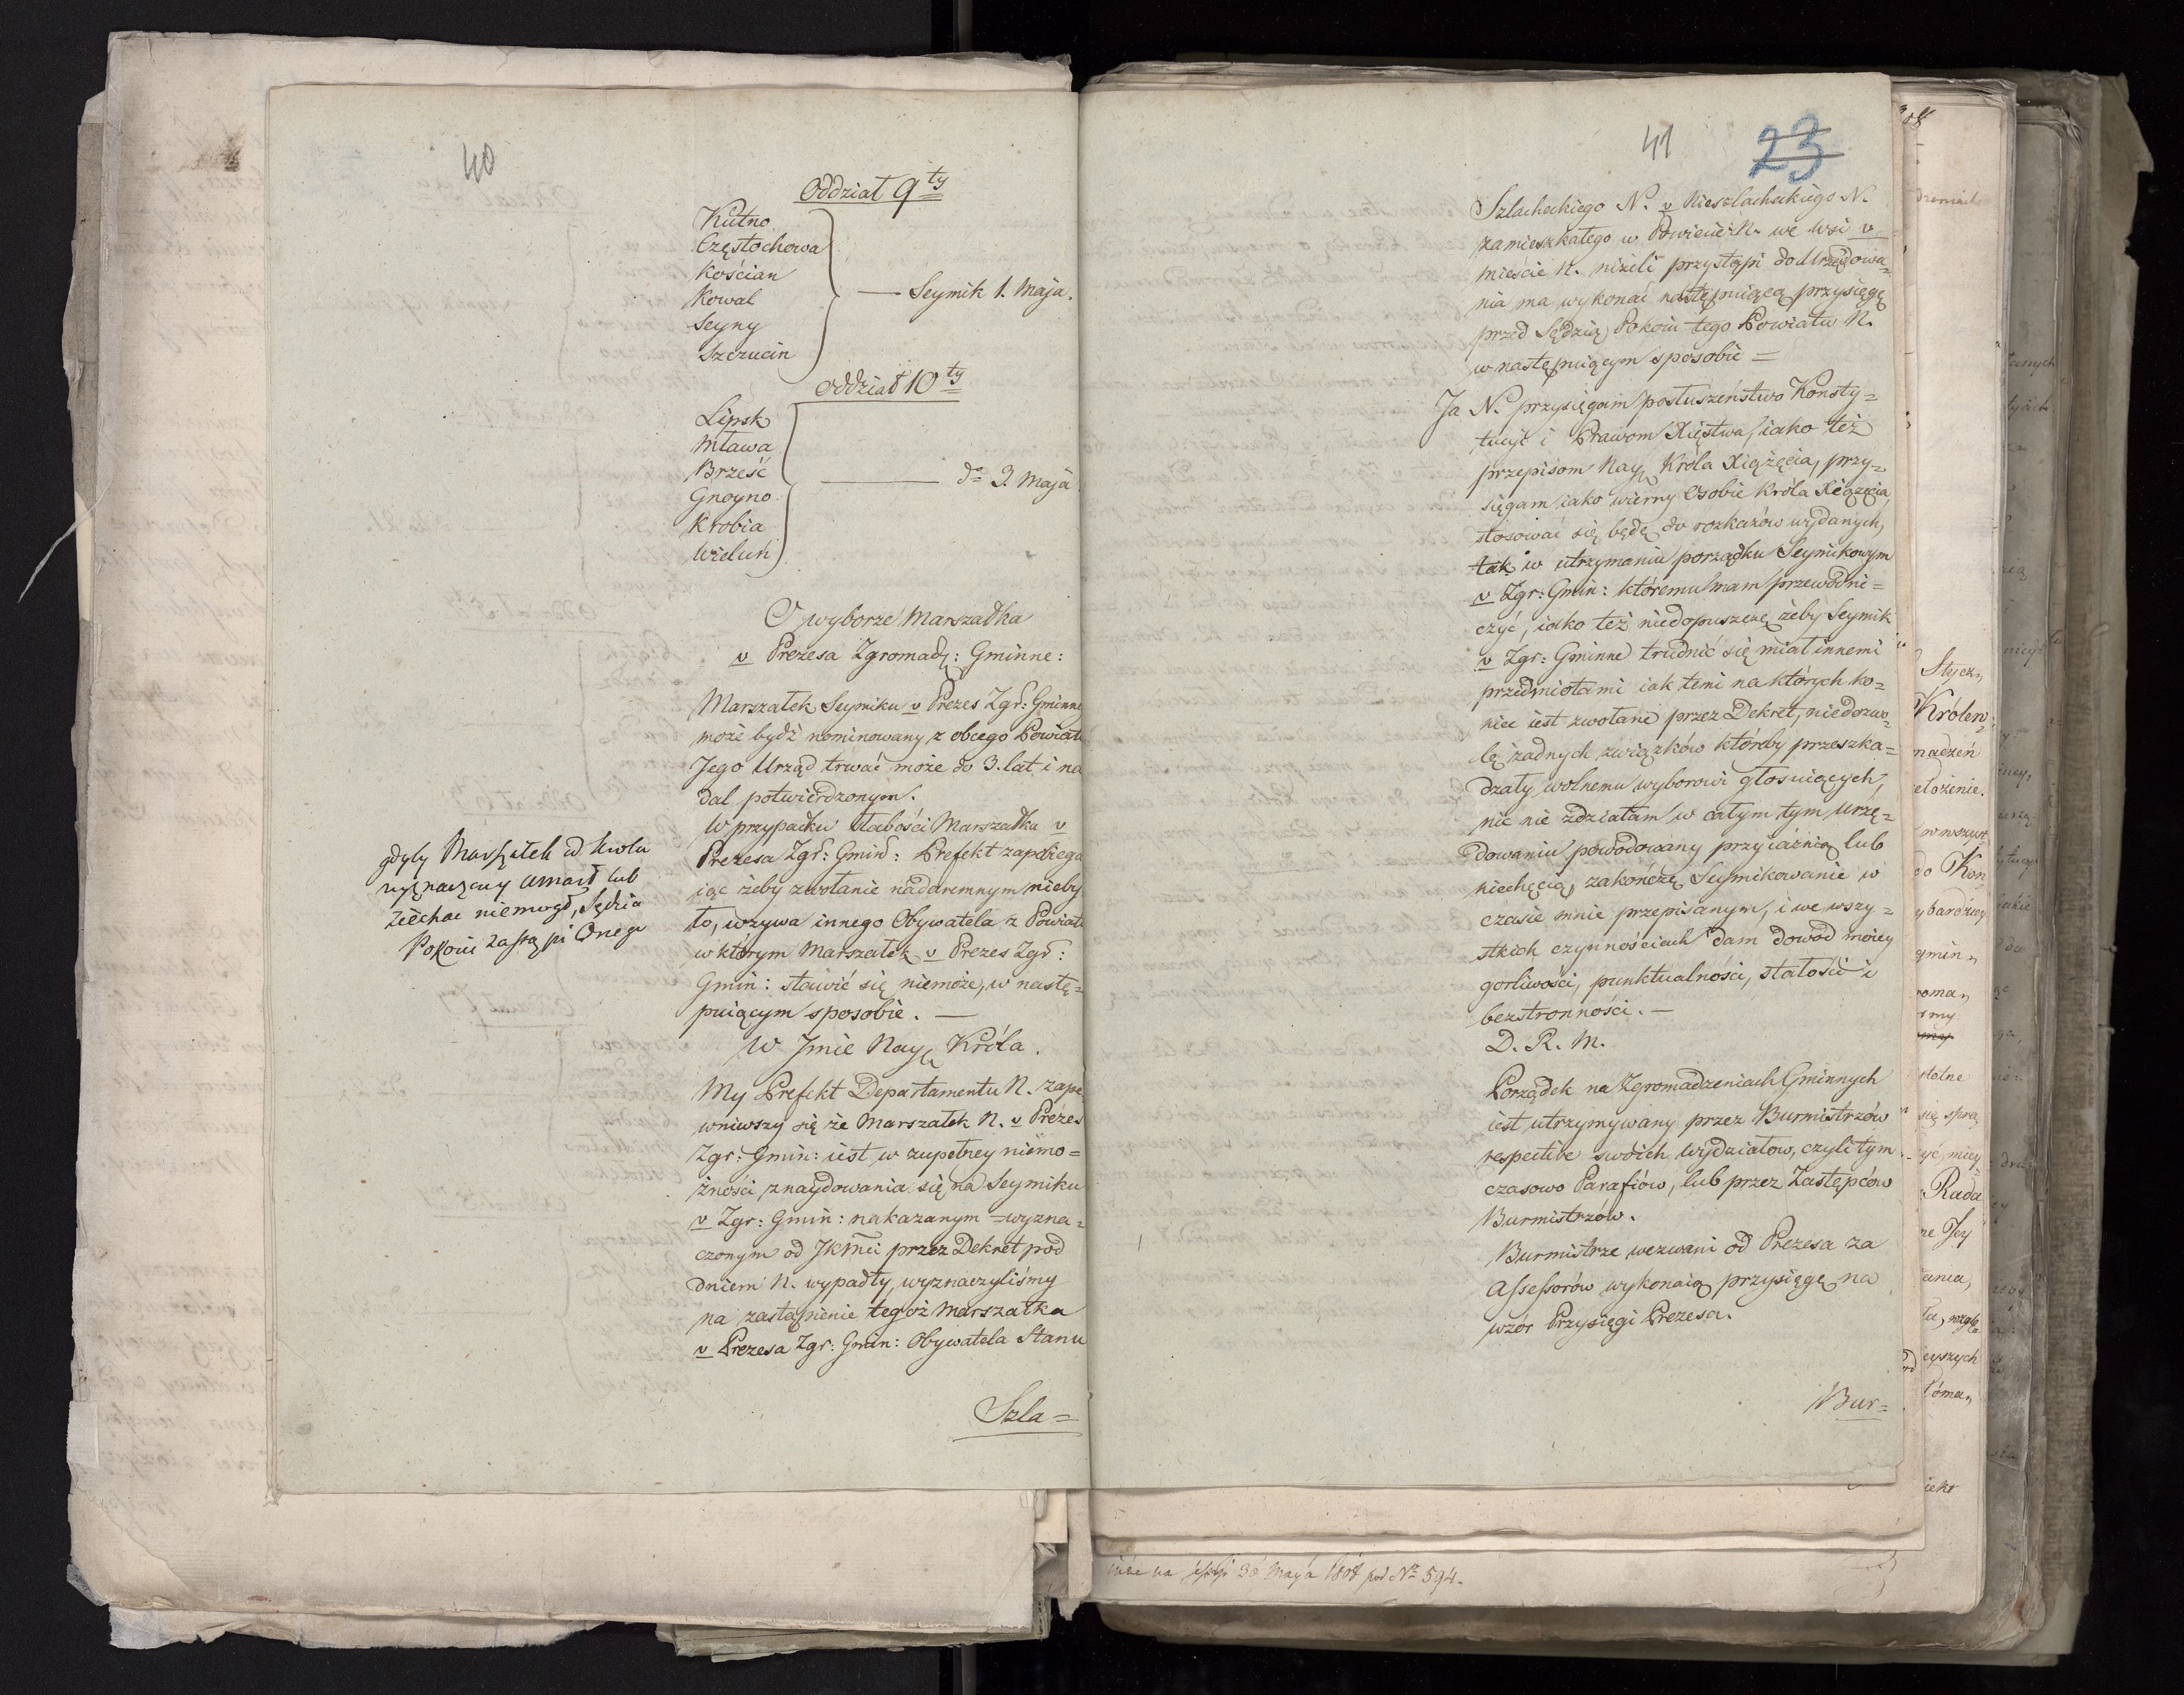 40
Oddział 9ty
Kutno
Częstochowa
Kościan
Kowal
Seyny
Szczucin
— Seymik 1. Maja.
Oddział 10ty
Lipsk
Mława
Brześć
Gnoyno
Krobia
Wieluń
— do 3. Maja
O wyborze Marszałka
v Prezesa Zgromadz: Gminne:
Marszałek Seymiku v Prezes Zgr: Gminne
może bydź nominowany z obcego Powiatu
Jego Urząd trwać może do 3. lat i na
dal potwierdzonym.
W przypadku słabości Marszałka v
Prezesa Zgr: Gmin: Prefekt zapobiega
iąc żeby zwołanie nadaremnym nieby
ło, wzywa innego Obywatela z Powiatu
w którym Marszałek v Prezes Zgr:
Gmin: stawić się niemoże, w nastę=
puiącym sposobie. —
gdyby Marszałek od Krola
wyznaczony umarł lub
Ziechac niemogł, Sędzia
Pokoiu zastąpi Onego
W Jmie Nay: Króla.
My Prefekt Departamentu N. zape
wniwszy się że Marszałek N. v Prezes
Zgr: Gmin: iest w zupełney niemo=
żności znaydowania się na Seymiku
v Zgr: Gmin: nakazanym = wyzna=
czonym od JKMci przez Dekret pod
dniem N. wypadły, wyznaczyliśmy
na zastąpienie tegoż Marszałka
v Prezesa Zgr: Gmin: Obywatela Stanu
Szla=
41 23
Szlacheckiego N. v Nieszlacheckiego N.
zamieszkałego w Powiecie N. we wsi v
mieście N. niżeli przystąpi do Urzędowa=
nia ma wykonać następuiącą przysięgę
przed Sędzią Pokoiu tego Powiatu N.
w następuiącym sposobie =
Ja N. przysięgam posłuszeństwo Konsty=
tucyi i Prawom Xięstwa, iako też
przepisom Nay: Króla Xiążęcia, przy=
sięgam iako wierny Osobie Króla Xiążęcia
stosować się będę do rozkazów wydanych,
tak w utrzymaniu porządku Seymikowym
v Zgr: Gmin: któremu mam przewodni=
czyć, iako też niedopuszczę żeby Seymik
v Zgr: Gminne trudnić się miał innemi
przedmiotami iak temi na których ko=
niec iest zwołane przez Dekret, niedozwo=
lę żadnych związków któreby przeszka=
dzały wolnemu wyborowi głosuiących,
nic nie zdziałam w całym tym Urzę=
dowaniu powodowany przyiaźnią lub
niechęcią, zakończę Seymikowanie w
czasie mnie przepisanym, i we wszy=
stkich czynnościach dam dowod moiey
gorliwości, punktualności, stałości i
bezstronności. —
D. R. M.
Porządek na Zgromadzeniach Gminnych
iest utrzymywany przez Burmistrzów
respective swoich Wydziałow, czyli tym
czasowo Parafiów, lub przez Zastępców
Burmistrzow.
Burmistrze wezwani od Prezesa za
Assessorów wykonaią przysięgę na
wzór Przysięgi Prezesa.
Bur=
30 Maja 1808 pod No 594.